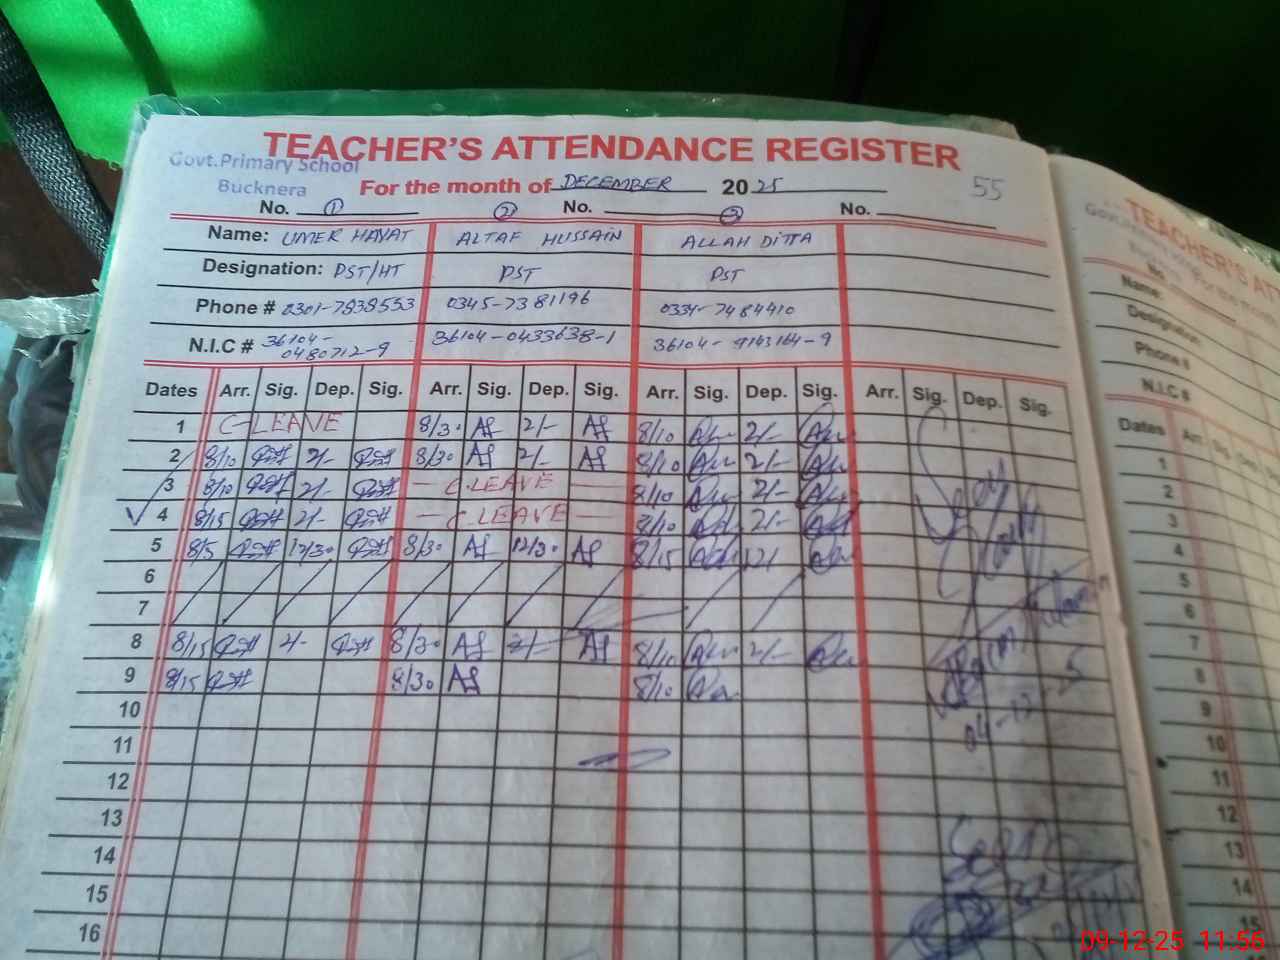 TEACHER'S ATTENDANCE REGISTER
Govt.Primary School
Bucknera
For the month of DECEMBER 2025
55
No. 1 2 No. 3 No.
Name: UMER HAYAT ALTAF HUSSAIN ALLAH DITTA
Designation: PST/HT PST PST
Phone # 0301-7838553 0345-7381196 0334-7484410
N.I.C # 36104-0480712-9 36104-0433638-1 36104-9143164-9
Dates Arr. Sig. Dep. Sig. Arr. Sig. Dep. Sig. Arr. Sig. Dep. Sig. Arr. Sig. Dep. Sig.
1 C-LEAVE 8/30 Af 2/- Af 8/10 2/-
2 8/10 2/- 8/30 Af 2/- Af 8/10 2/-
3 8/10 2/- C.LEAVE 8/10 2/-
4 8/15 2/- C.LEAVE 8/10 2/-
5 8/5 12/30 8/30 Af 12/30 Af 8/15 12/
6
7
8 8/15 2/- 8/30 Af 2/- Af 8/10 2/-
9 8/15 8/30 Af 8/10
10
11
12
13
14
15
16
Seen
04-12
TEACHER'S A
Name:
Designation:
Phone #
N.I.C #
Dates Arr.
1
2
3
4
5
6
7
8
9
10
11
12
13
14
15
09-12-25 11:56